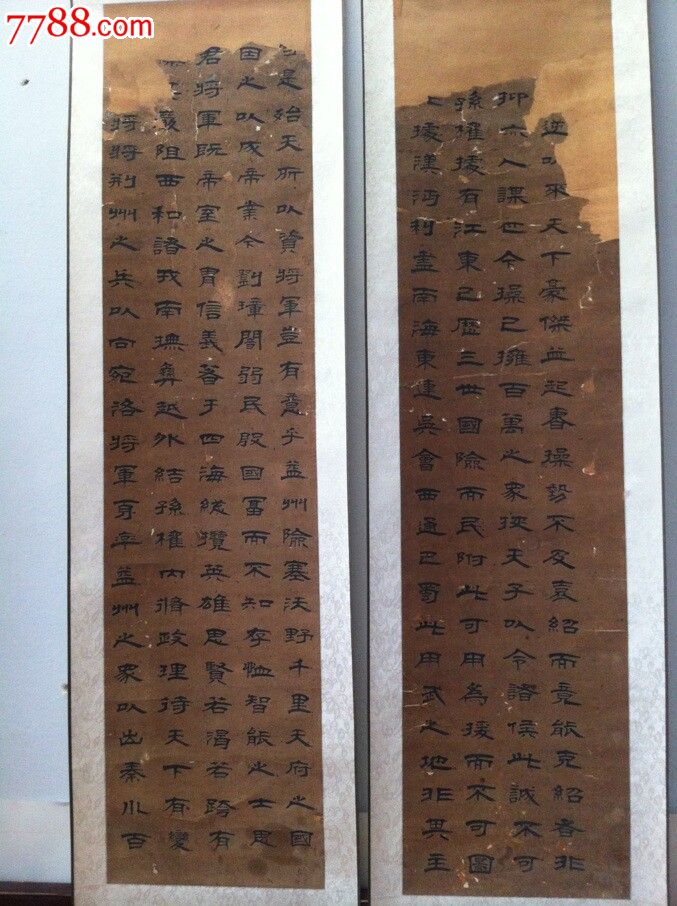 7788.com
逆以來天下豪傑並起曹操勢不及袁紹而竟能克紹者非
抑亦人謀也今操已擁百萬之眾挾天子以令諸侯此誠不可
孫權據有江東已歷三世國險而民附此可用為援而不可圖
據漢沔利盡南海東連吳會西通巴蜀此用武之地非其主
是始天所以資將軍豈有意乎益州險塞沃野千里天府之國
因之以成帝業今劉璋闇弱民殷國富而不知存恤智能之士思
君將軍既帝室之胄信義著于四海總攬英雄思賢若渴若跨有
巖阻西和諸戎南撫彝越外結孫權內脩政理待天下有變
將將荊州之兵以向宛洛將軍身率益州之眾以出秦川百